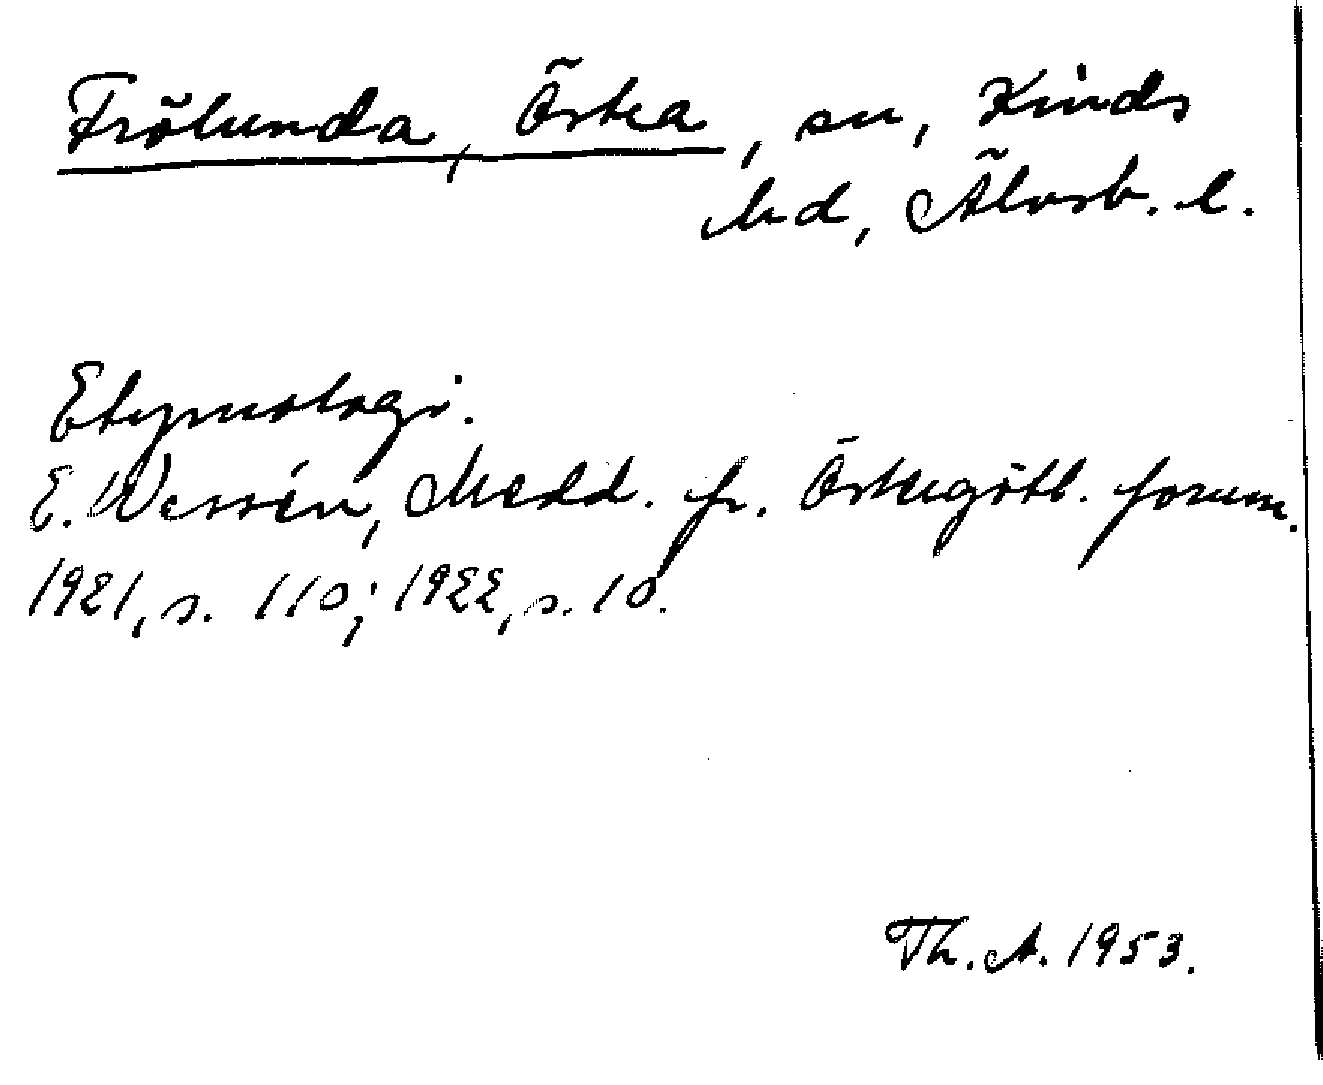 Frölunda, Östra, sn, Kinds
hd, Älvsb. l.
Etymologi.
E. Wessén, Medd. fr. Östergötl. fornm.
1921, s. 110; 1922, s. 10.
Th. A. 1953.